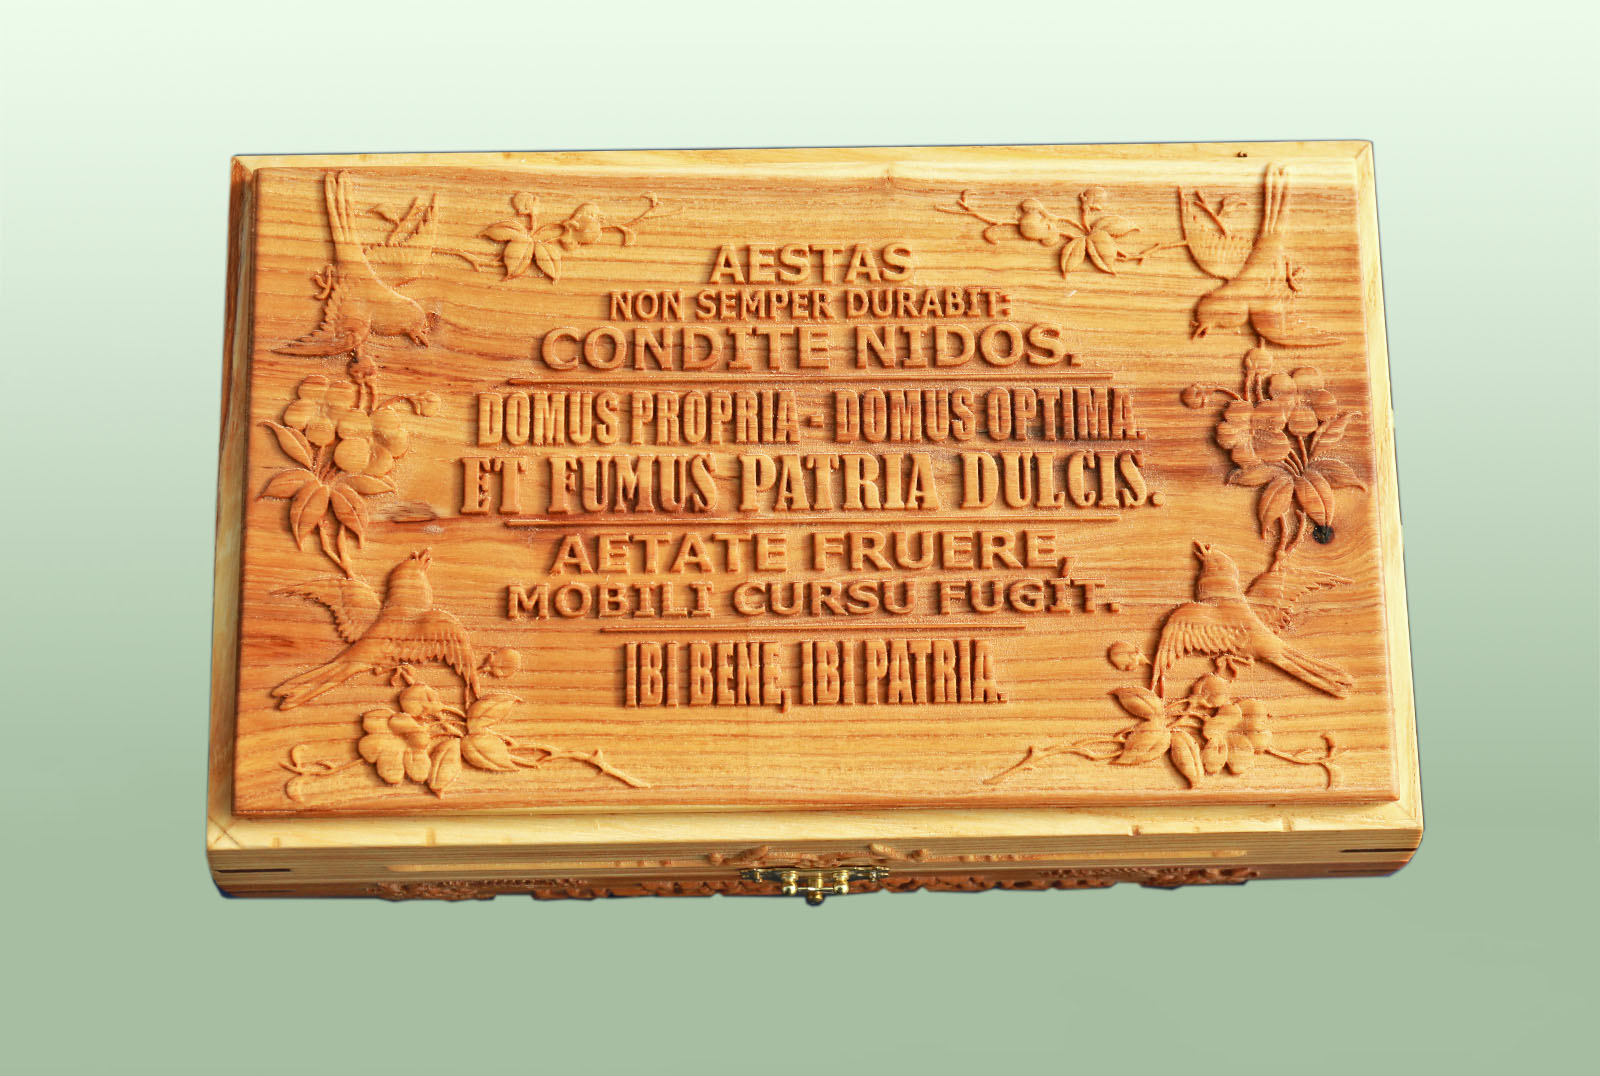 AESTAS
NON SEMPER DURABIT:
CONDITE NIDOS.
DOMUS PROPRIA - DOMUS OPTIMA.
ET FUMUS PATRIA DULCIS.
AETATE FRUERE,
MOBILI CURSU FUGIT.
IBI BENE, IBI PATRIA.